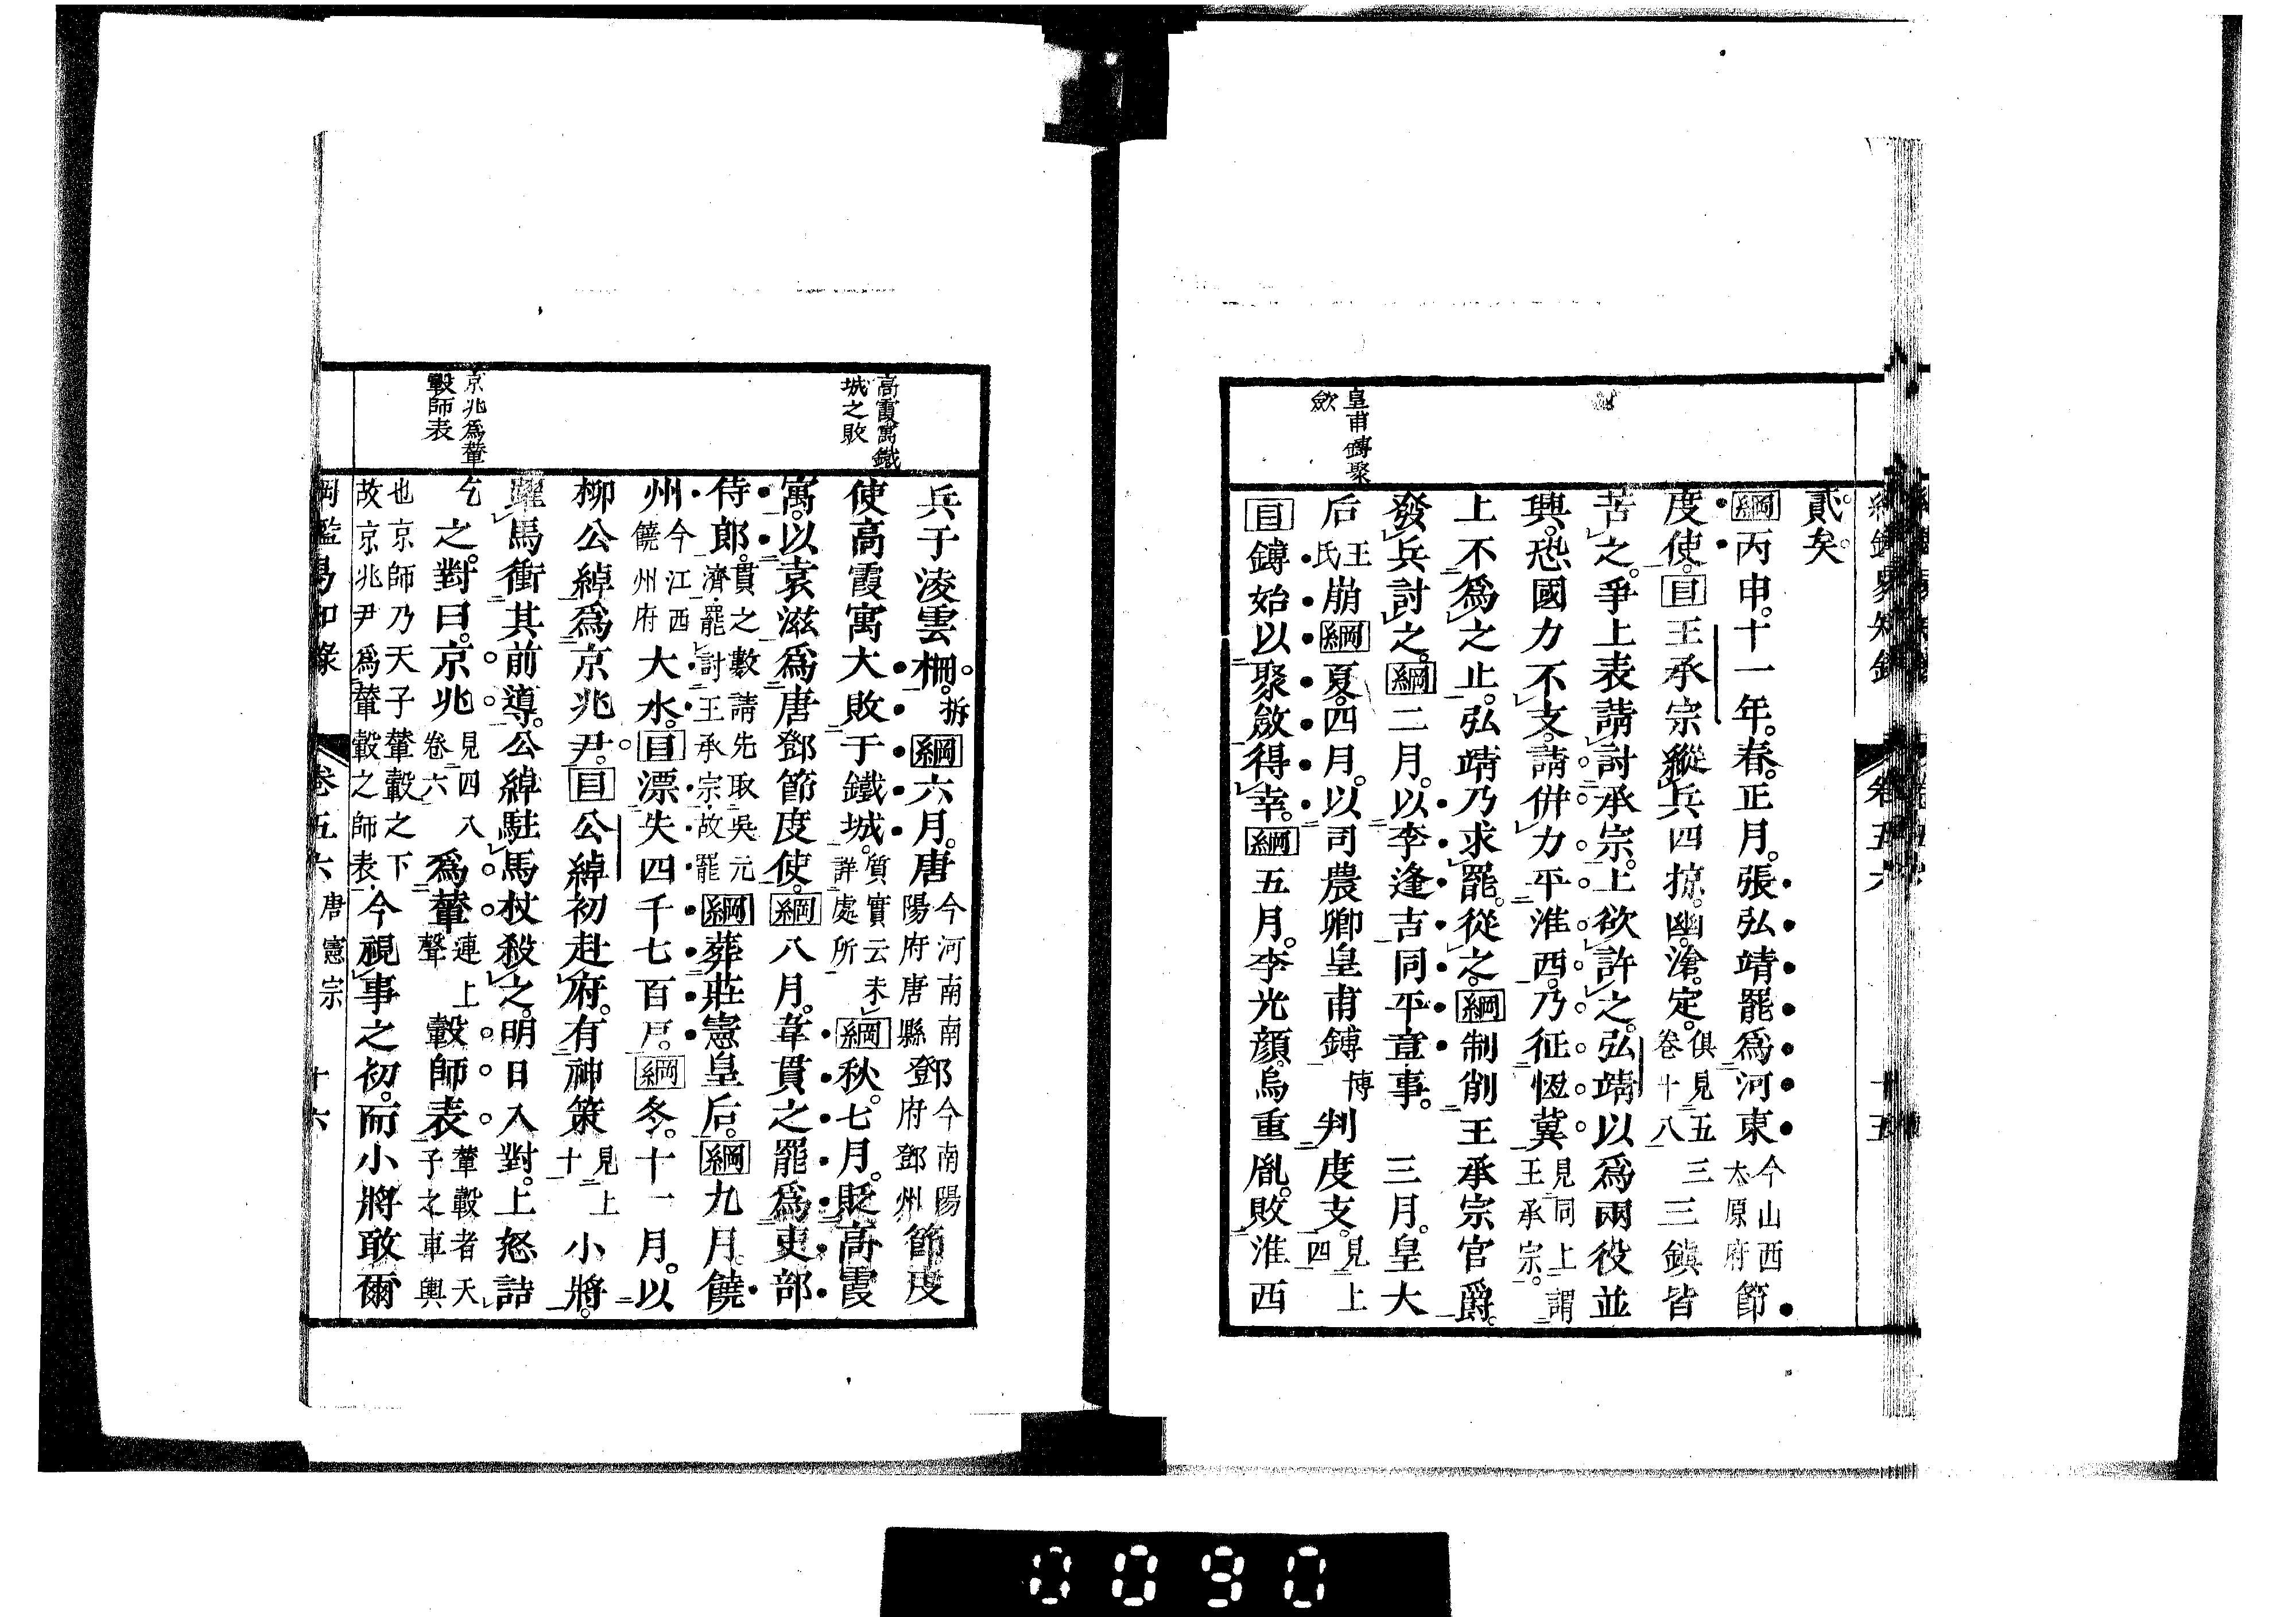 綱鑑易知錄 卷五六 十五
皇甫鎛聚
斂
貳矣。
綱丙申。十一年。春。正月。張弘靖罷爲河東今山西太原府節
度使。目王承宗縱兵四掠。幽。滄。定。俱見五卷十八三三鎮皆
苦之。爭上表請討承宗。上欲許之。弘靖以爲兩役並
興。恐國力不支。請併力平淮西。乃征恆冀見同上謂王承宗。
上不爲之止。弘靖乃求罷。從之。綱制削王承宗官爵。
發兵討之。綱二月。以李逢吉同平章事。 三月。皇太
后王氏崩綱夏。四月。以司農卿皇甫鎛博判度支。見上四
目鎛始以聚斂得幸。綱五月。李光顏。烏重胤。敗淮西
高霞寓鐵
城之敗
京兆爲輦
轂師表
兵于淩雲柵。拆綱六月。唐今河南南陽府唐縣鄧今南陽府鄧州節度
使高霞寓大敗于鐵城。質實云未詳處所綱秋。七月。貶高霞
寓。以袁滋爲唐鄧節度使。綱八月。韋貫之罷爲吏部
侍郎。貫之數請先取吳元濟罷討王承宗故罷綱葬莊憲皇后。綱九月。饒
州今江西饒州府大水。目漂失四千七百戶。綱冬。十一月。以
柳公綽爲京兆尹。目公綽初赴府。有神策見上十小將。
躍馬衝其前導。公綽駐馬杖殺之。明日入對。上怒詰
之。對曰。京兆見四八卷六爲輦連上聲轂師表輦轂者天子之車輿
也京師乃天子輦轂之下故京兆尹爲輦轂之師表今視事之初。而小將敢爾
綱鑑易知錄 卷五六 唐憲宗 十六
0090